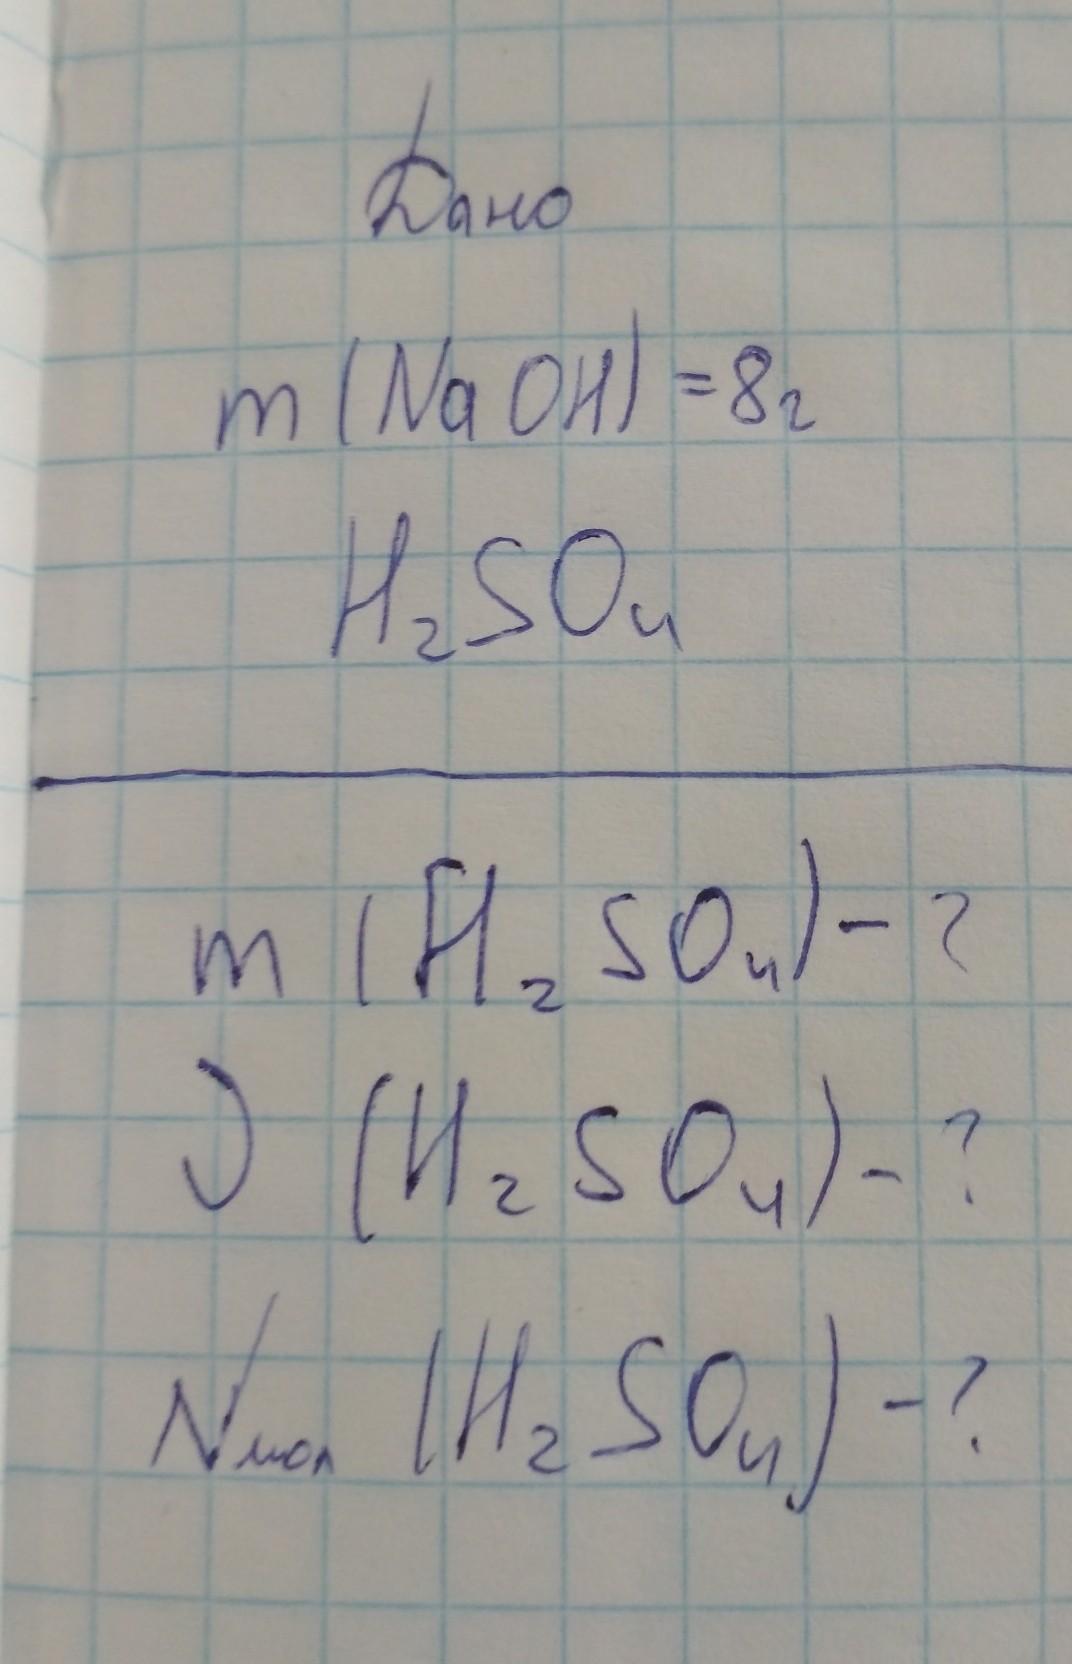 Дано
m (NaOH) = 8г
H₂SO₄
m (H₂SO₄) - ?
ν (H₂SO₄) - ?
Nмол (H₂SO₄) - ?